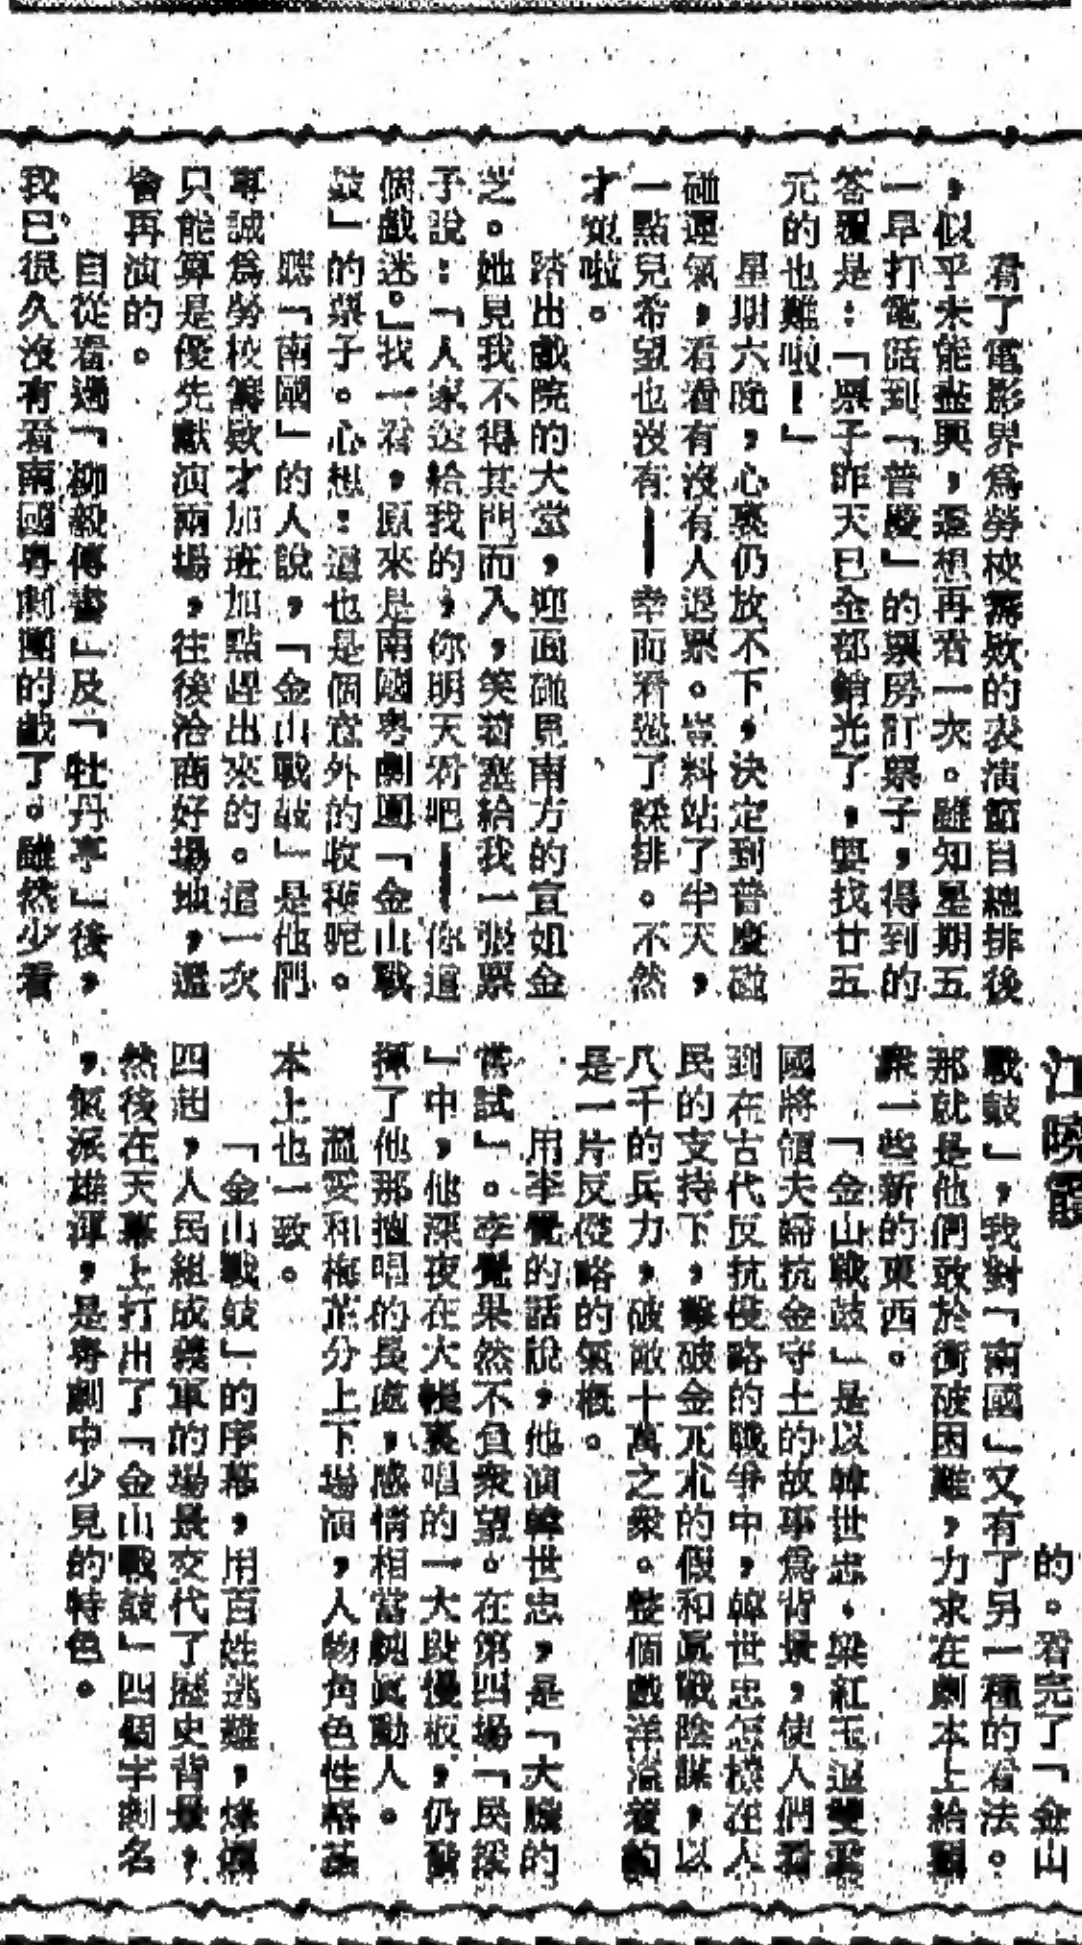 江曉霞
看了電影界爲勞校籌欵的表演節目總排後
，似乎未能盡興，還想再看一次。雖知星期五
一早打電話到「普慶」的票房訂票子，得到的
答覆是：「票子昨天已全部銷光了，要找廿五
元的也難啦！」
星期六晚，心裏仍放不下，決定到普慶碰
碰運氣，看看有沒有人退票。豈料站了半天，
一點兒希望也沒有——幸而看過了綵排。不然
才寃啦。
踏出戲院的大堂，迎面碰見南方的宣姐金
芝。她見我不得其門而入，笑着塞給我一張票
子說：「人家送給我的，你明天看吧——你這
個戲迷。」我一看，原來是南國粤劇團「金山戰
鼓」的票子。心想：這也是個意外的收穫呢。
聽「南國」的人說，「金山戰鼓」是他們
專誠爲勞校籌欵才加班加點趕出來的。這一次
只能算是優先獻演兩場，往後洽商好場地，還
會再演的。
自從看過「柳毅傳書」及「牡丹亭」後，
我已很久沒有看南國粤劇團的戲了。雖然少看
的。看完了「金山
戰鼓」，我對「南國」又有了另一種的看法。
那就是他們敢於衝破困難，力求在劇本上給觀
衆一些新的東西。
「金山戰鼓」是以韓世忠、梁紅玉這雙愛
國將領夫婦抗金守土的故事爲背景，使人們看
到在古代反抗侵略的戰爭中，韓世忠怎樣在人
民的支持下，擊破金兀朮的假和眞戰陰謀，以
八千的兵力，破敵十萬之衆。整個戲洋溢着的
是一片反侵略的氣概。
用李覺的話說，他演韓世忠，是「大膽的
嘗試」。李覺果然不負衆望。在第四場「民援
」中，他深夜在大帳裏唱的一大段慢板，仍發
揮了他那擅唱的長處，感情相當純眞動人。
溫雯和梅芷分上下場演，人物角色性格基
本上也一致。
「金山戰鼓」的序幕，用百姓逃難，烽烟
四起，人民組成義軍的場景交代了歷史背景，
然後在天幕上打出了「金山戰鼓」四個字劇名
，氣派雄渾，是粤劇中少見的特色。